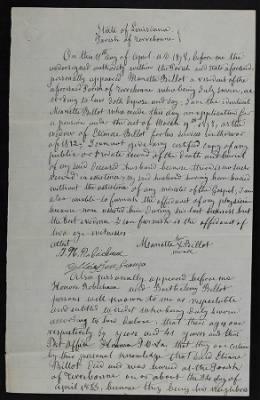 State of Louisiana
Parish of Terrebonne
On this 11th day of April A.D. 1878, before me the
undersigned authority within the Parish and State aforesaid,
personally appeared Marcette Billot a resident of the
aforesaid Parish of Terrebonne who being duly sworn, ac-
cording to law doth depose and say: I am the identical
Marcette Billot who made this day an application for
a pension under the act of March 9th 1878, as the
widow of Etienne Billot for his services in the war
of 1812. I can not give any certified copy of any
public or private record of the death and burial
of my said deceased husband because there is no such
record in existence, my said husband having been buried
without the attention of any minister of the Gospel; I am
also unable to furnish the affidavit of any physician
because none attended him during his last sickness but
the best evidence I can furnish is the affidavit of
two eye witnesses
Attest
Marcette Billot
mark
Also personally appeared before me
Honoré Robichaux and Barthelemy Billot
persons well known to me as respectable
and entitled to credit who being duly sworn
according to law declare: that they are
respectively and years and this
Post Office Houma P.O. La. that they are certain
by their personal knowledge that said Etienne
Billot died and was buried at the Parish
of Terrebonne on or about the day of
April 1855, because they being his neighbors